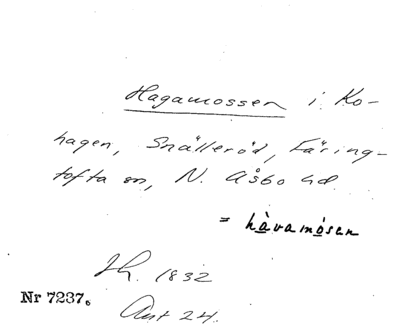 Hagamossen i Ko-
hagen, Snälleröd, Färing-
tofta sn, N. Åsbo hd.
= håvamosen
Th. 1832
Nr 7237.
Ant 24.